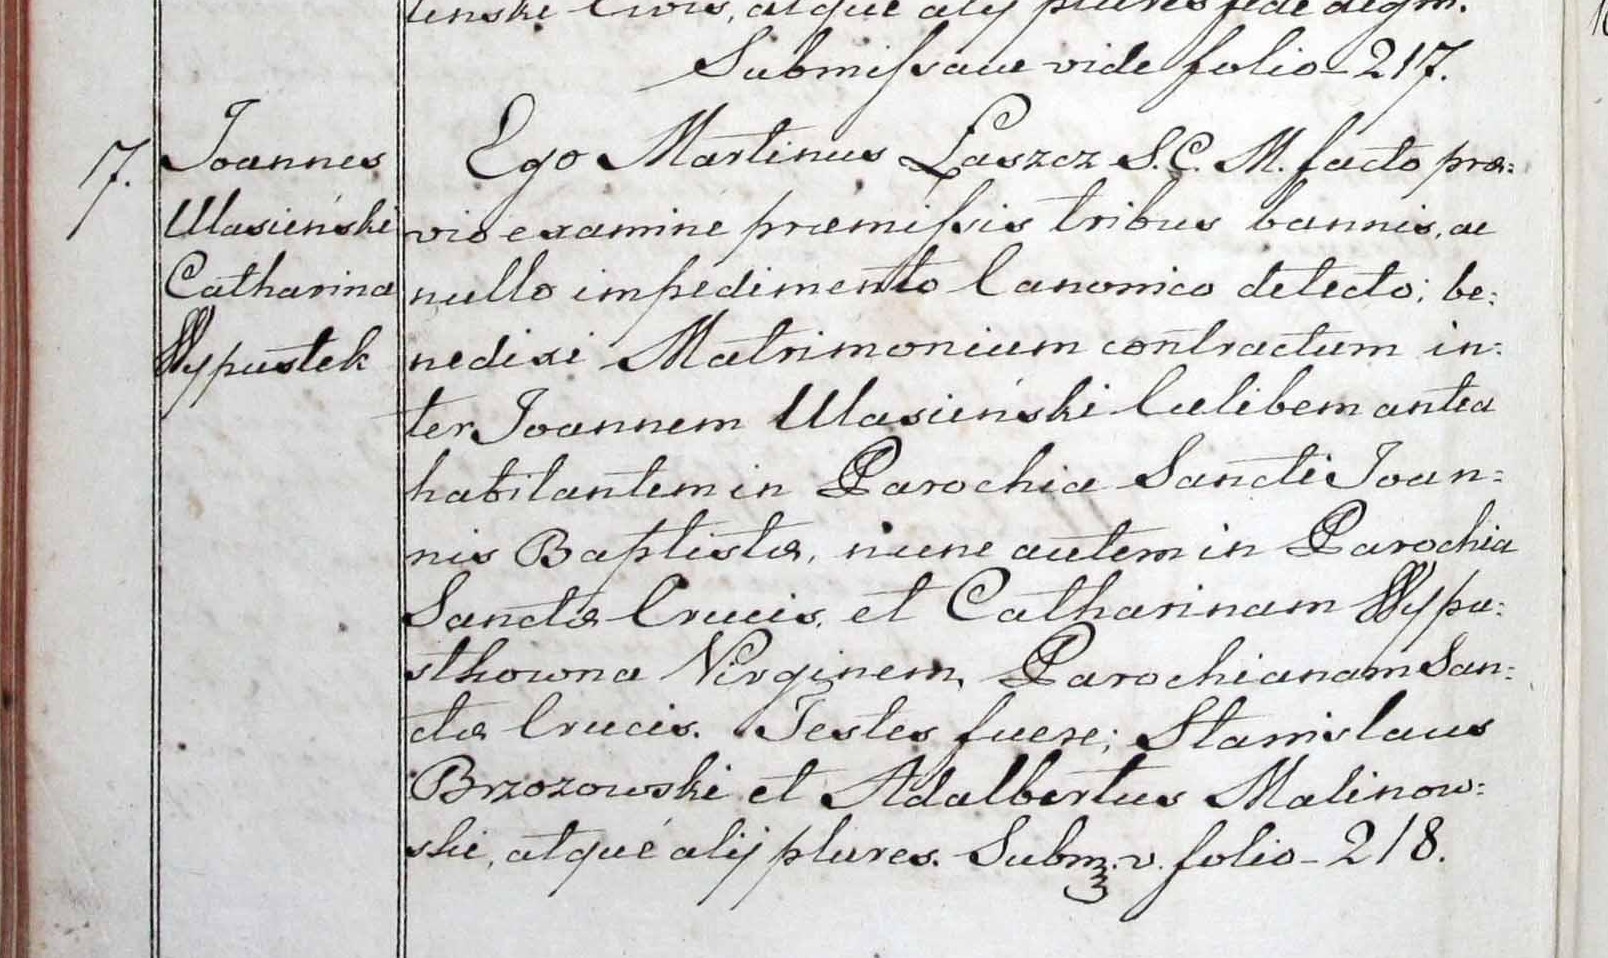 tenski Civis, atque alij plures fide digni.
Submissaue vide folio - 217.
17. Joannes Ulasieński Catharina Wypustek
Ego Martinus Laszcz S.C.M. facto præ:
vio examine præmissis tribus bannis, ac
nullo impedimento Canonico detecto; be:
nedixi Matrimonium contractum in:
ter Joannem Ulasieński Cælibem antea
habitantem in Parochia Sancti Joan:
nis Baptistæ, nunc autem in Parochia
Sanctæ Crucis, et Catharinam Wypu:
stkowna Virginem, Parochianam San:
ctæ Crucis. Testes fuere; Stanislaus
Brzozowski et Adalbertus Malinow:
ski, atque alij plures. Subm. v. folio - 218.